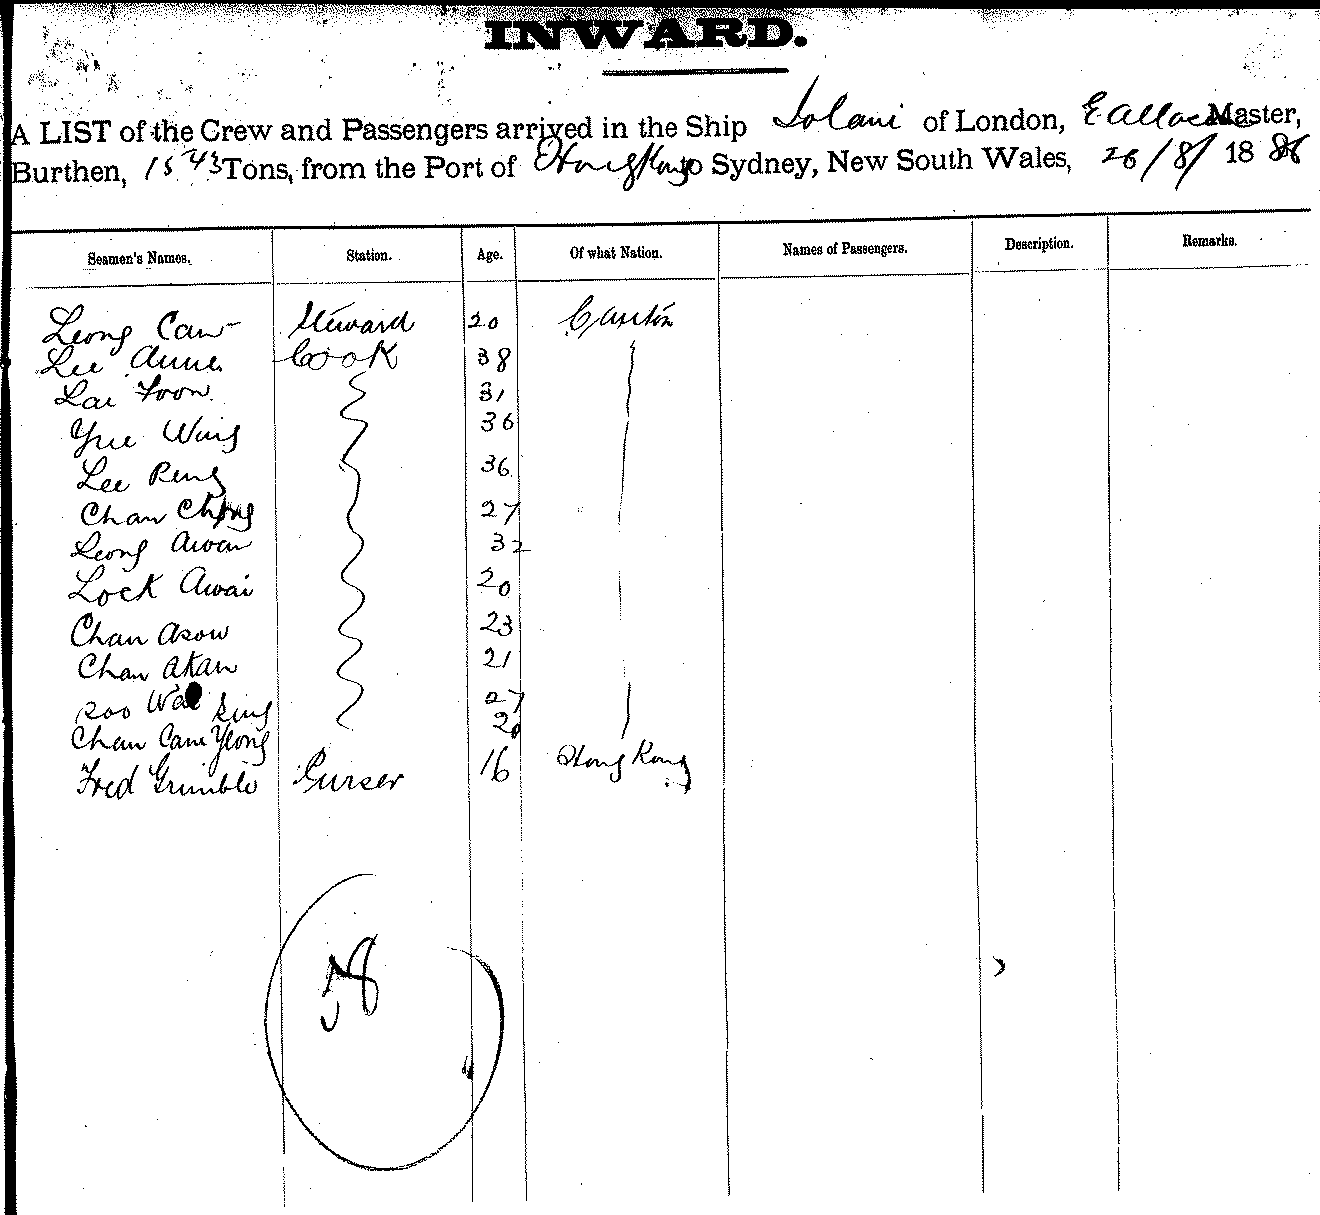 INWARD.
A LIST of the Crew and Passengers arrived in the Ship Iolani of London, E Master,
Burthen, 1543 Tons, from the Port of Hong Kong to Sydney, New South Wales, 26/8/ 1886
Seamen's Names. Station. Age. Of what Nation. Names of Passengers. Description. Remarks.
Leong Caw Steward 20 Canton
Lee Cook 38
Lai Foon 31
Yue Wing 36
Lee Peng 36
Chan 27
Leong Awan 32
Lock Awai 20
Chan Asow 23
Chan Akan 21
Soo Wai 27
Chan Cam Yeong 20
Fred Grimble Purser 16 Hong Kong
58